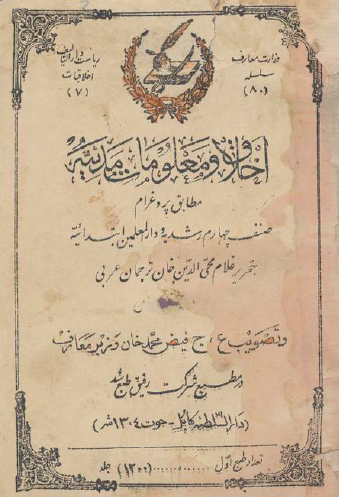 وزارت معارف
سلسله
(۸۰)
ریاست دارالتالیف
اخلاقیات
(۷)
اخلاق و معلومات مدنیه
مطابق پروغرام
صنف چهارم رشدیه و دارالمعلمین ابتدائیه
بتحریر غلام محی الدین خان ترجمان عربی
و تصویب ع، ج فیض محمد خان وزیر معارف
در مطبع شرکت رفیق طبع شد
(دار السلطنه کابل - حوت ۱۳۰۴ش)
تعداد طبع اول (۱۲۰۰) جلد